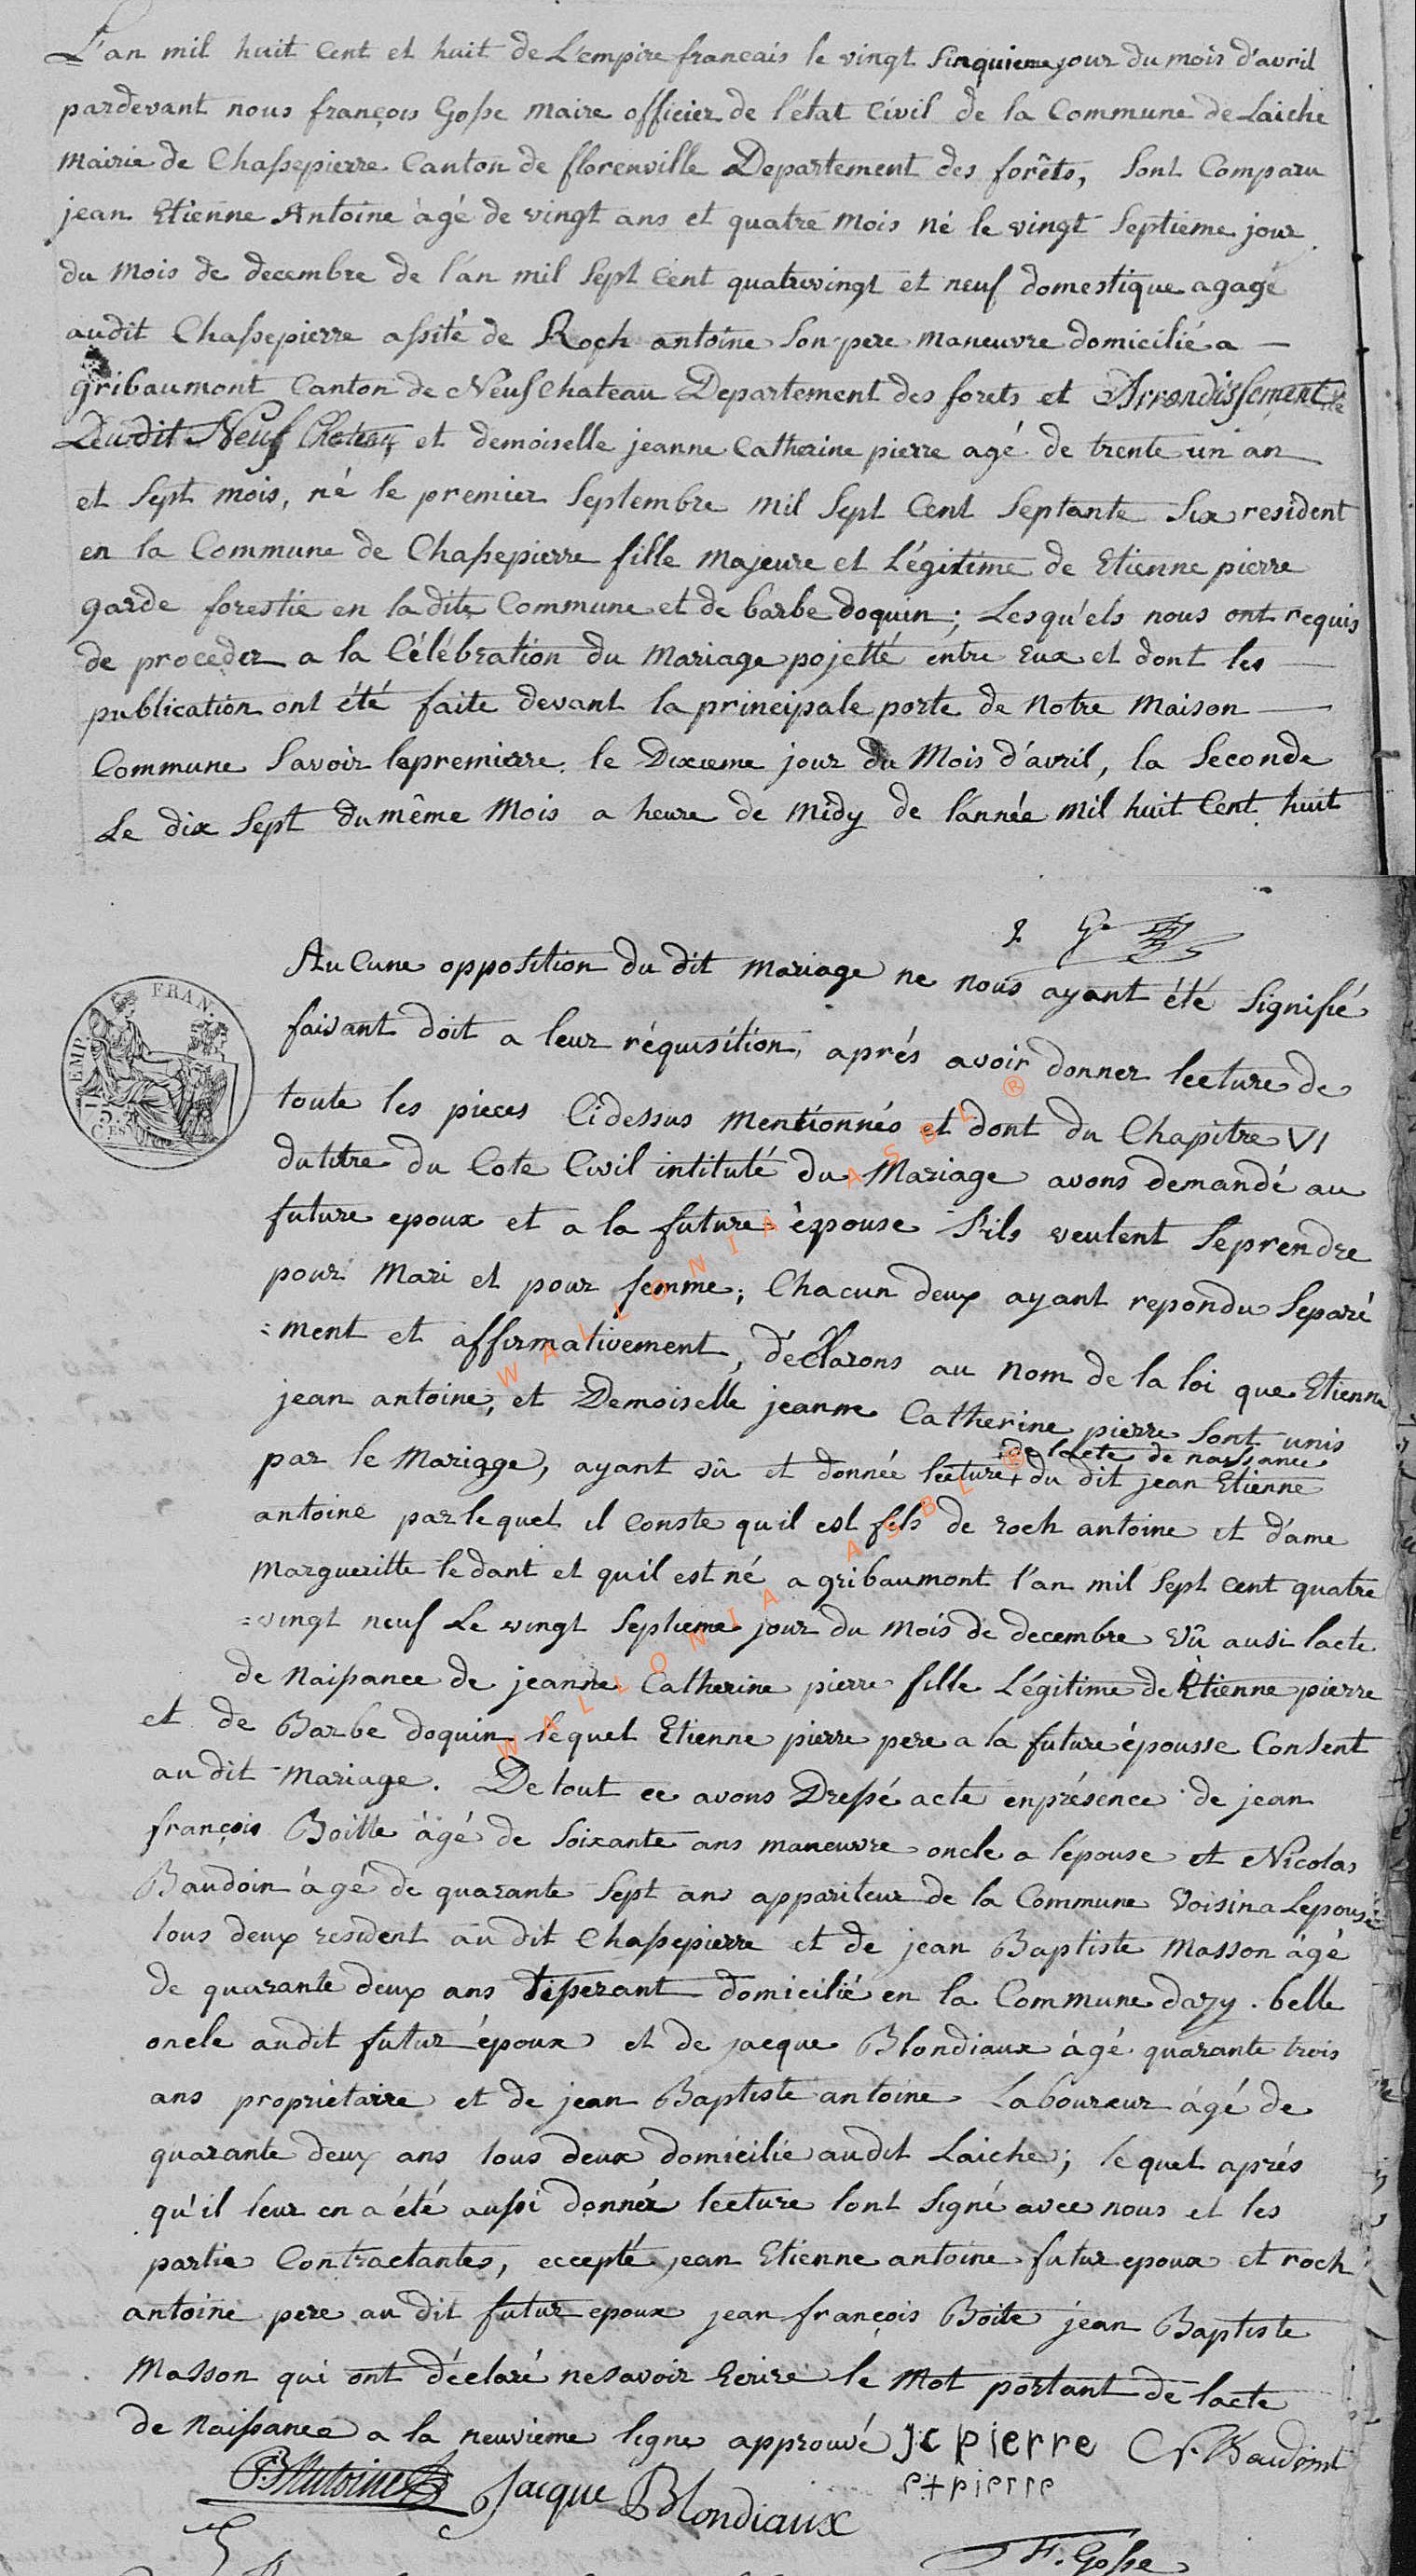 L'an mil huit Cent et huit de L'empire francais le vingt Sinquieme jour du mois d'avril
pardevant nous françois Gosse maire officier de l'état Civil de la Commune de Laiche
Mairie de Chassepierre Canton de florenville Departement des forêts, Sont Comparu
jean Etienne Antoine àgé de vingt ans et quatre Mois né le vingt Septieme jour
du Mois de decembre de l'an mil Sept Cent quatrevingt et neuf domestique agagé
audit Chassepierre assité de Roch antoine Son pere maneuvre domicilié a —
gribaumont Canton de Neufchateau Departement des forets et Arrondissement de
Deudit Neuf Chateau et demoiselle jeanne Catherine pierre agé de trente un an
et Sept mois, né le premier Septembre Mil Sept Cent Septante Six resident
en la Commune de Chassepierre fille Majeure et Légitime de Etienne pierre
garde forestie en la dite Commune et de barbe doquin; Lesqu'els nous ont requis
de proceder a la Célébration du Mariage pojetté entre Eux et dont les —
publication ont été faite devant la principale porte de Notre Maison —
Commune Savoir la premierre le Dixieme jour du Mois d'avril, la Seconde
Le dix Sept du même Mois a heure de Midy de l'année Mil huit Cent huit
2 Ge
EMP. FRAN.
AuCune opposition du dit Mariage ne nous ayant été Signifié
faisant doit a leur réquisition, aprés avoir donner lecture de
toute les pieces Cidessus Mentionnés et dont du Chapitre VI
du titre du Cote Civil intitulé du Mariage avons demandé au
future epoux et a la future épouse S'ils veulent Seprendre
pour Mari et pour femme; Chacun deux ayant repondu Separé
=ment et affirmativement, déclarons au Nom de la loi que Etienne
jean antoine, et Demoiselle jeanne Catherine pierre Sont unis
de lacte de naissance
par le Mariage, ayant vû et donnée lecture + du dit jean Etienne
antoine par lequel il Conste qu'il est fils de roch antoine et d'ame
Margueritte ledant et quil est né a gribaumont l'an mil Sept Cent quatre
=vingt neuf Le vingt Septieme jour du Mois de decembre vû ausi lacte
de Naissance de jeanne Catherine pierre fille Légitime de Etienne pierre
et de Barbe doquin lequel Etienne pierre pere a la future épousse Consent
au dit Mariage. De tout ce avons Dressé acte en présence de jean
françois Boitte àgé de Soixante ans maneuvre oncle a l'épouse et Nicolas
Baudoin àgé de quarante Sept ans appariteur de la Commune Voisin a Lepouse
tous deux resident au dit Chassepierre et de jean Baptiste Masson àgé
de quarante deux ans tisserant domicilié en la Commune dazy belle
oncle audit futur époux et de jacque Blondiaux àgé quarante trois
ans propriétaire et de jean Baptiste antoine Laboureur àgé de
quarante deux ans tous deux domicilié audit Laiche; lequel aprés
qu'il leur en a été aussi donnée lecture l'ont Signé avec nous et les
partie Contractantes, eccepté jean Etienne antoine futur epoux et roch
antoine pere au dit futur epoux jean françois Boite jean Baptiste
Masson qui ont déclaré nesavoir Ecrire le Mot portant de lacte
de Naissance a la neuvieme ligne approuvé jc pierre N. Baudoint
JBAntoine Jacque Blondiaux e+pierre
F. Gosse
WALLONIA ASBL ®
WALLONIA ASBL ®